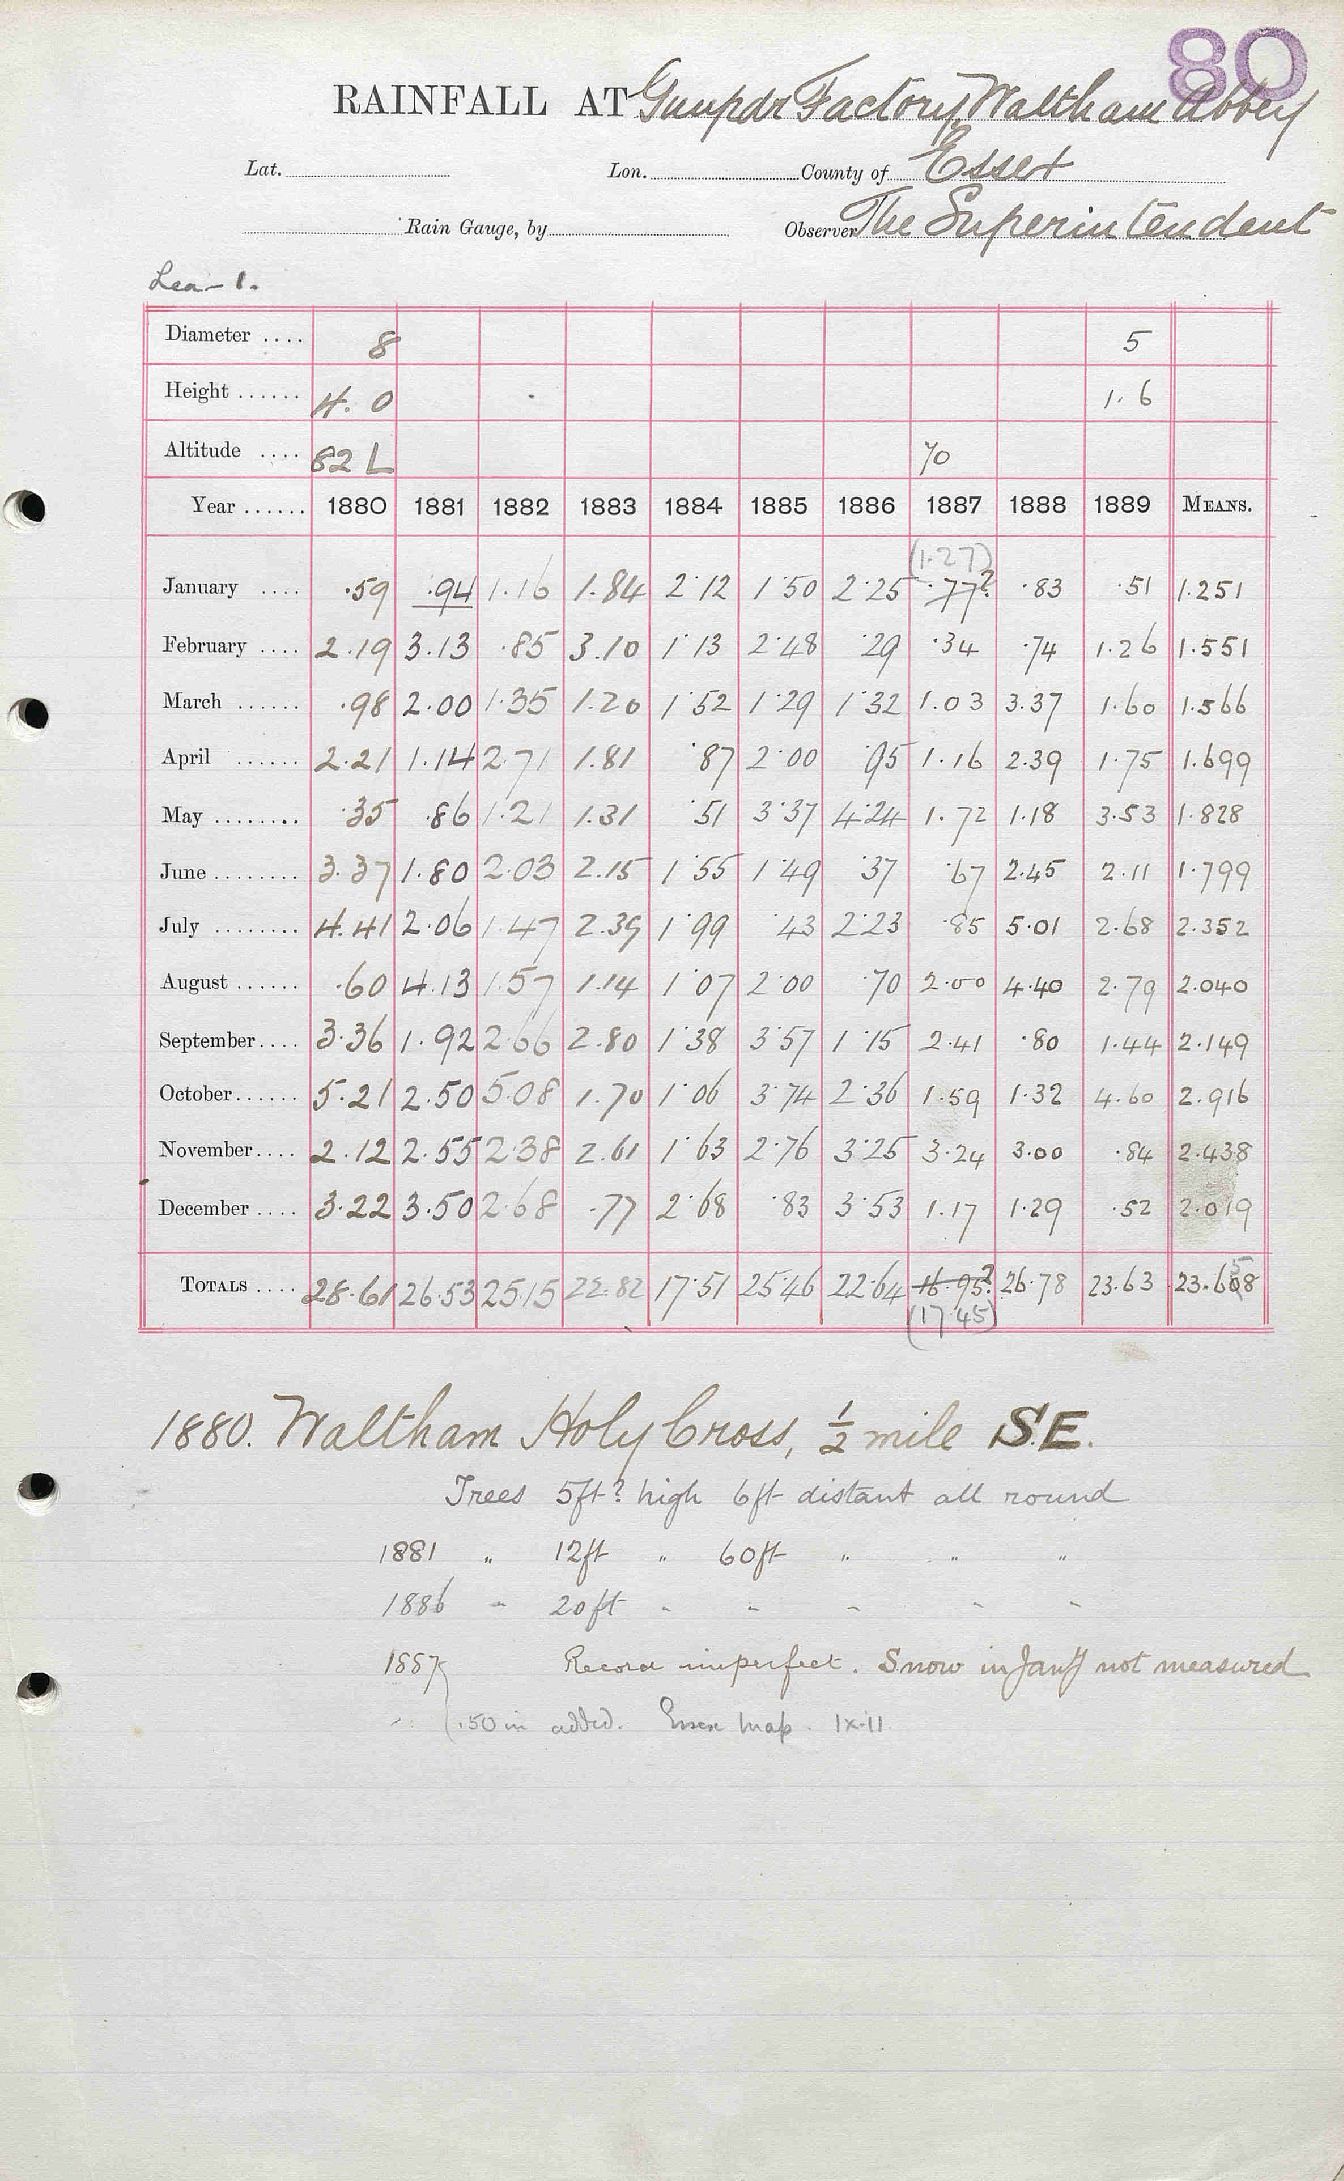 80
RAINFALL AT Gunpdr Factory, Waltham Abbey
Lat. Lon. County of Essex
Rain Gauge, by Observer The Superintendent
Lea - 1.
Diameter .... 8 5
Height ...... 4. 0 1. 6
Altitude .... 82 L 70
Year ...... 1880 1881 1882 1883 1884 1885 1886 1887 1888 1889 MEANS.
(1.27)
January .... .59 .94 1.16 1.84 2.12 1.50 2.25 .77? .83 .51 1.251
February .... 2.19 3.13 .85 3.10 1.13 2.48 .29 .34 .74 1.26 1.551
March ...... .98 2.00 1.35 1.20 1.52 1.29 1.32 1.03 3.37 1.60 1.566
April ...... 2.21 1.14 2.71 1.81 .87 2.00 .95 1.16 2.39 1.75 1.699
May ........ .35 .86 1.21 1.31 .51 3.37 4.24 1.72 1.18 3.53 1.828
June ........ 3.37 1.80 2.03 2.15 1.55 1.49 .37 .67 2.45 2.11 1.799
July ........ 4.41 2.06 1.47 2.39 1.99 .43 2.23 .85 5.01 2.68 2.352
August ...... .60 4.13 1.57 1.14 1.07 2.00 .70 2.00 4.40 2.79 2.040
September .... 3.36 1.92 2.66 2.80 1.38 3.57 1.15 2.41 .80 1.44 2.149
October ...... 5.21 2.50 5.08 1.70 1.06 3.74 2.36 1.59 1.32 4.60 2.916
November .... 2.12 2.55 2.38 2.61 1.63 2.76 3.25 3.24 3.00 .84 2.438
December .... 3.22 3.50 2.68 .77 2.68 .83 3.53 1.17 1.29 .52 2.019
TOTALS .... 28.61 26.53 25.15 22.82 17.51 25.46 22.64 16.95? 26.78 23.63 23.608
5
(17.45)
1880. Waltham Holy Cross, ½ mile S.E.
Trees 5ft? high 6ft distant all round
1881 " 12ft " 60ft " " "
1886 " 20ft " " " " "
1887 Record imperfect. Snow in Jany not measured
" .50 in added. Essex Map. IX.11.